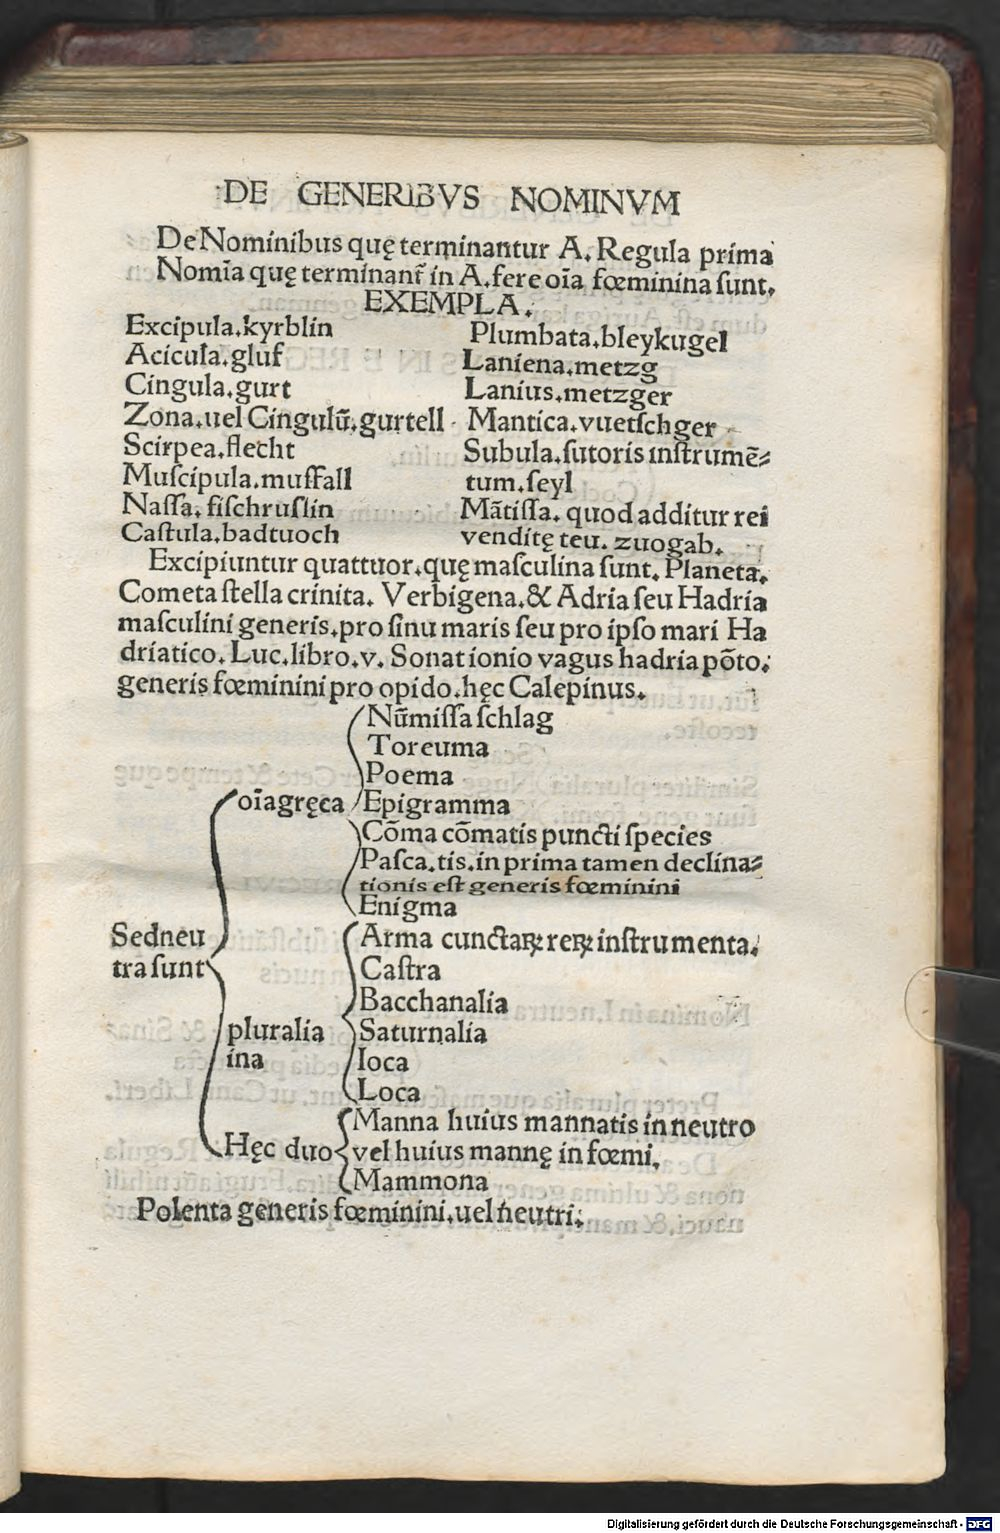 DE GENERIBVS NOMINVM
De Nominibus quę terminantur A. Regula prima
Nomīa quę terminanť in A. fere oīa fœminina ſunt.
EXEMPLA.
Excipula. kyrblin
Acicula. gluf
Cingula. gurt
Zona. uel Cingulū. gurtell
Scirpea. flecht
Muſcipula. muſfall
Naſſa. fiſchruſlin
Caſtula. badtuoch
Plumbata. bleykugel
Laniena. metzg
Lanius. metzger
Mantica. vuetſchger
Subula. ſutoris inſtrumē⸗
tum. ſeyl
Mātiſſa. quod additur rei
venditę teu. zuogab.
Excipiuntur quattuor. quę maſculina ſunt. Planeta.
Cometa ſtella crinita. Verbigena. & Adria ſeu Hadria
maſculini generis. pro ſinu maris ſeu pro ipſo mari Ha
driatico. Luc. libro. v. Sonat ionio vagus hadria pōto.
generis fœminini pro opido. hęc Calepinus.
Sed neu
tra ſunt
oīa gręca
Nūmiſſa ſchlag
Toreuma
Poema
Epigramma
Cōma cōmatis puncti ſpecies
Paſca. tis. in prima tamen declina⸗
tionis eſt generis fœminini
Enigma
pluralia
ina
Arma cunctaꝝ reꝝ inſtrumenta.
Caſtra
Bacchanalia
Saturnalia
Ioca
Loca
Hęc duo
Manna huius mannatis in neutro
vel huius mannę in fœmi.
Mammona
Polenta generis fœminini. uel neutri.
Digitalisierung gefördert durch die Deutsche Forschungsgemeinschaft - DFG